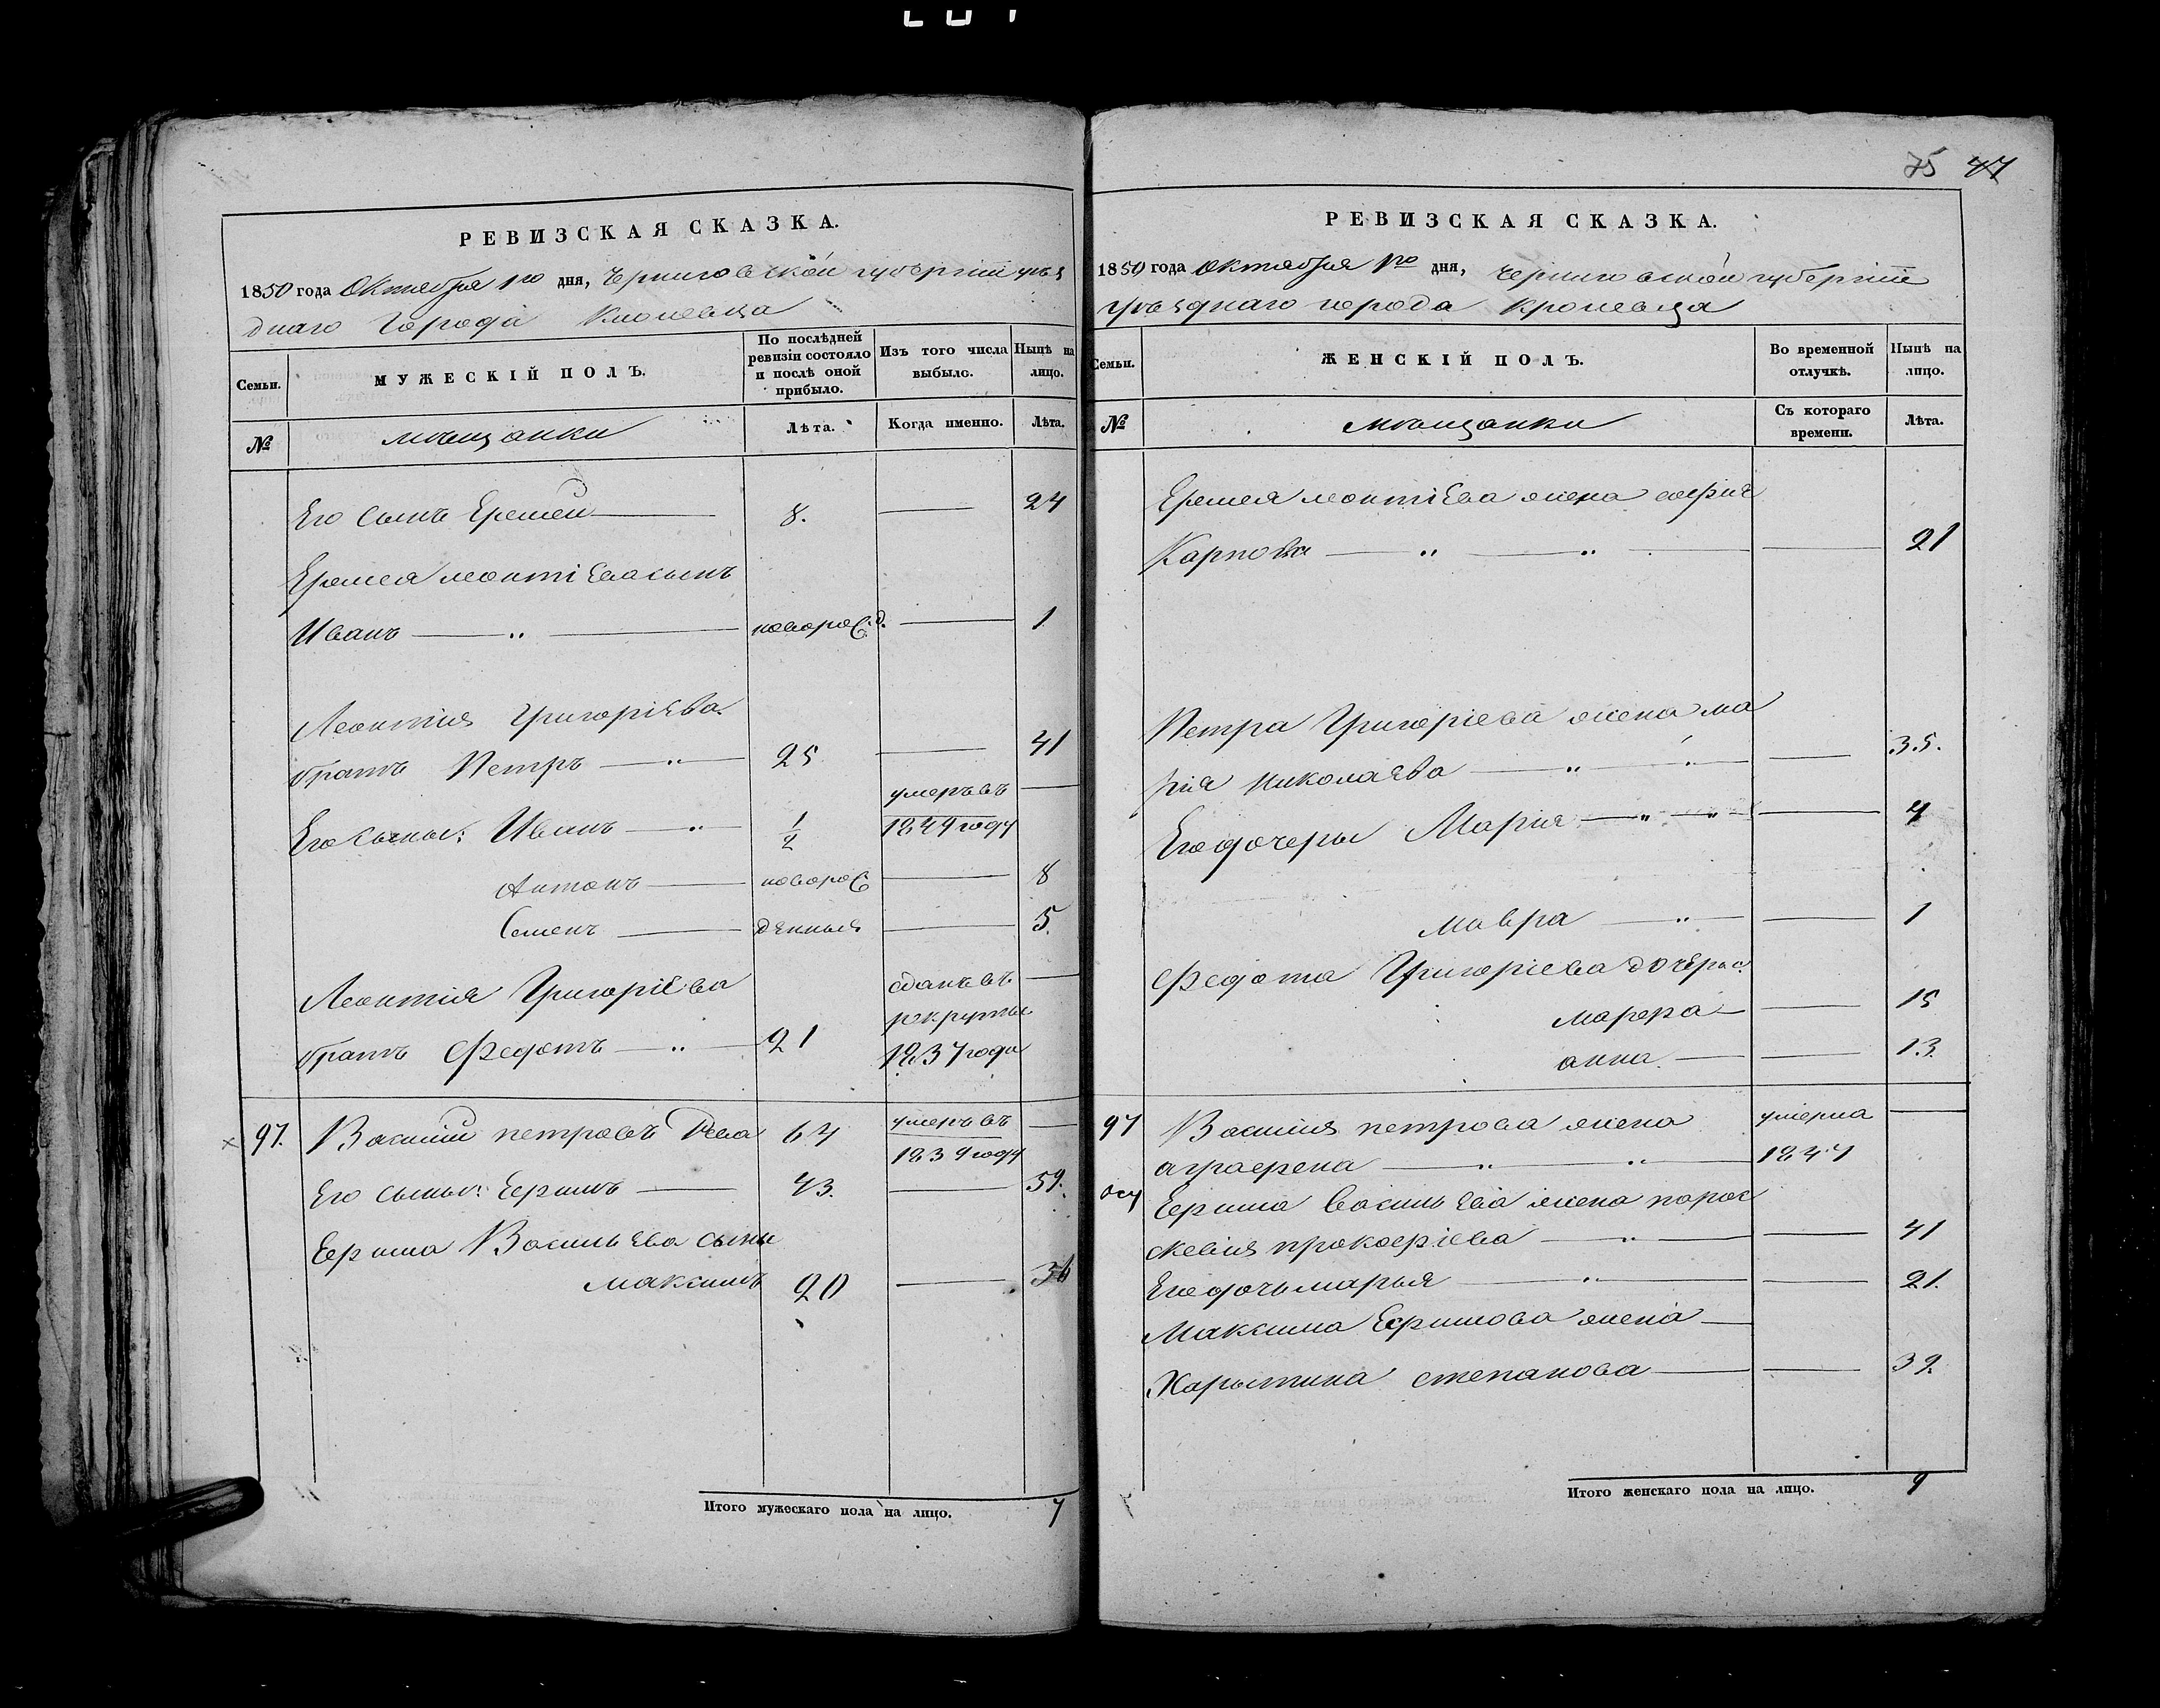 РЕВИЗСКАЯ СКАЗКА.
1850 года Октября 1го дня, Черниговской губерніи уѣз
днаго Города Кролевца
Семьи.
МУЖЕСКІЙ ПОЛЪ.
По послѣдней ревизіи состояло и послѣ оной прибыло.
Изъ того числа выбыло.
Нынѣ на лицо.
№
мѣщанки
Лѣта.
Когда именно.
Лѣта.
Его сынъ Еремей 8. 24
Еремея леонтіева сынъ
Иванъ новорожд. 1
Леонтія Григоріева
братъ Петръ 25 41
Его сыны: Иванъ 1/2 умеръ въ 1849 году
Антонъ новорож 8
Семенъ денные 5.
Леонтія Григоріева
братъ Федотъ 21 сданъ въ рекруты 1837 года
97. Василій петровъ Рева 64 умеръ въ 1839 году
Его сыны: Ефимъ 43. 59.
Ефима Васильева сыны
максимъ 20 36
Итого мужескаго пола на лицо. 7
75 77
РЕВИЗСКАЯ СКАЗКА.
1850 года Октября 1го дня, Черниговской губерніи
уѣзднаго города Кролевца
Семьи.
ЖЕНСКІЙ ПОЛЪ.
Во временной отлучкѣ.
Нынѣ на лицо.
№
мѣщанки
Съ котораго времени.
Лѣта.
Еремея леонтіева жена софия
Карпова 21
Петра Григоріева жена ма
рія николаева 35.
Его дочеры Марія 4
мавра 1
Федота Григоріева дочеры:
марфа 15
анна 13.
97 Василія петрова жена
аграфена умерла 1847
Ефима васильева жена парас
кевія прокофіева 41
Его дочь марья 21.
Максима Ефимова жена
Харытина степанова 32
Итого женскаго пола на лицо. 9